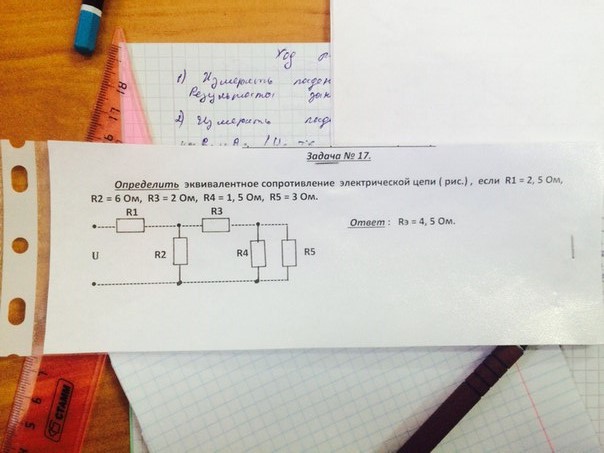 Ход
1) Измерить паден
Результаты зан
2) Измерить пад
Задача № 17.
Определить эквивалентное сопротивление электрической цепи ( рис.) , если R1 = 2, 5 Ом,
R2 = 6 Ом, R3 = 2 Ом, R4 = 1, 5 Ом, R5 = 3 Ом.
Ответ : Rэ = 4, 5 Ом.
R1 R3
U R2 R4 R5
18
17
16
СТАММ
7
6
5